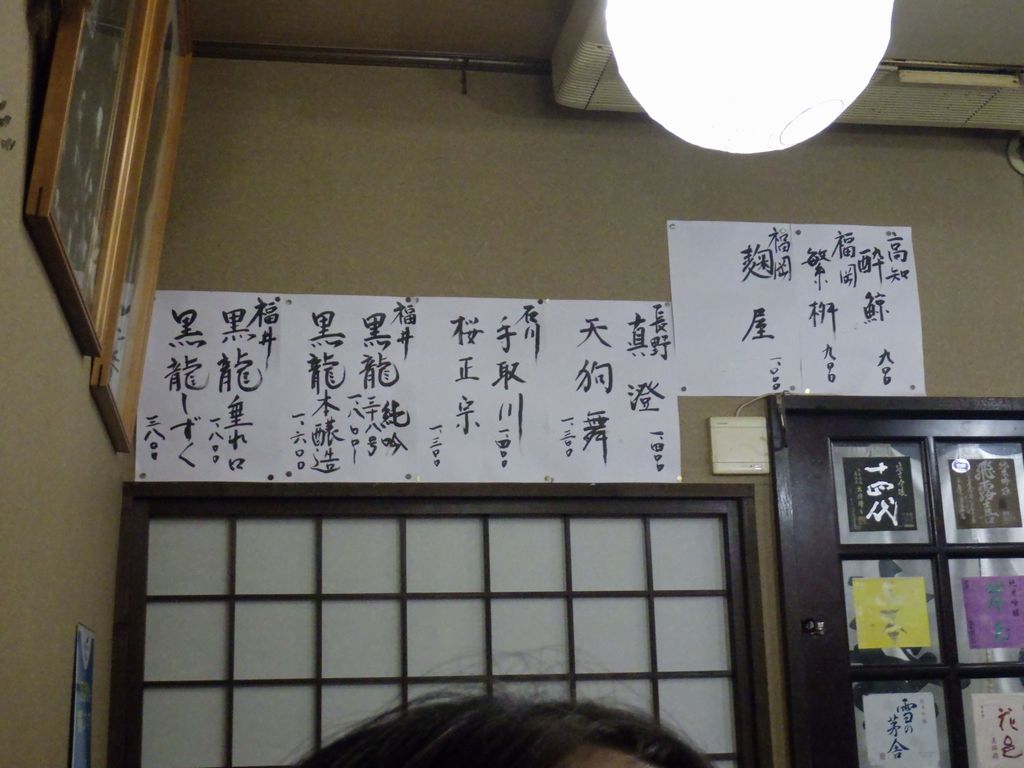 高知
酔鯨 九〇〇
福岡
繁桝 九〇〇
福岡
麹屋 一、〇〇〇
長野
真澄 一、四〇〇
天狗舞 一、三〇〇
石川
手取川 一、四〇〇
桜正宗 一、三〇〇
福井
黒龍 純吟
三十八号 一、八〇〇
黒龍 本醸造 一、六〇〇
福井
黒龍 垂れ口 一、八〇〇
黒龍 しずく 三、八〇〇
十四代
飛露喜
雪の茅舎
花邑